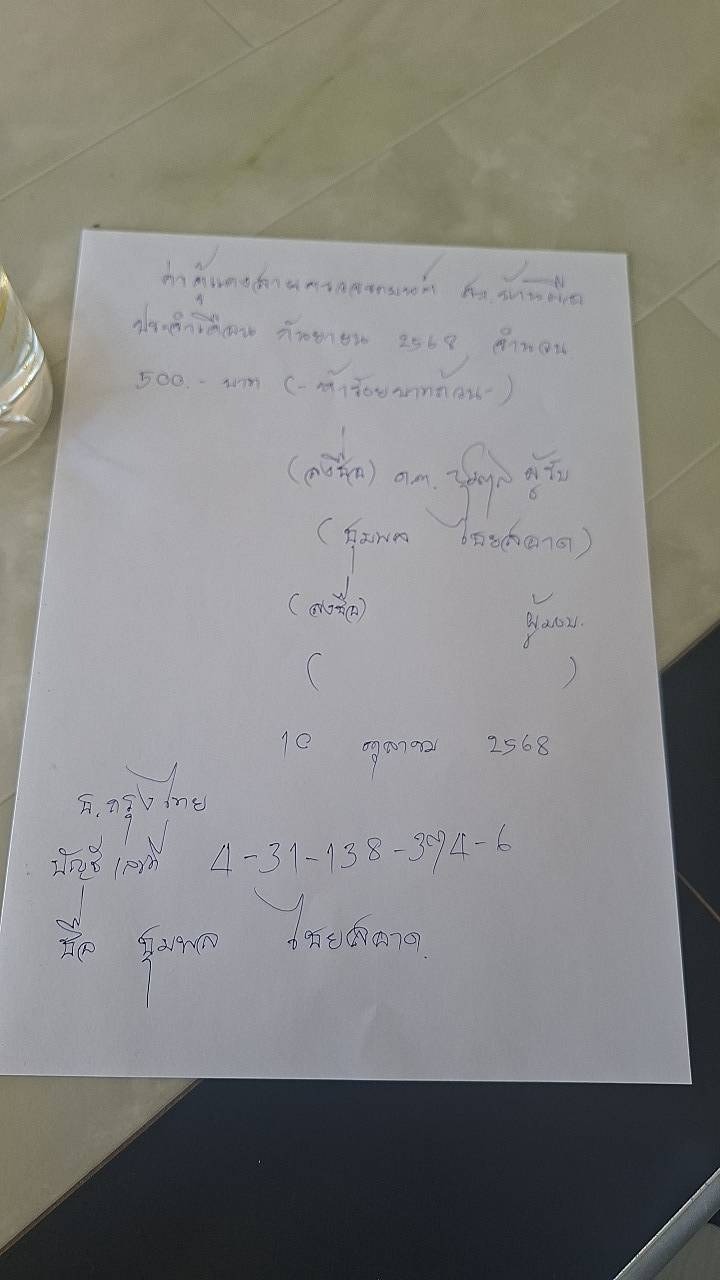 ค่าตู้แดงสายตรวจรถยนต์ สภ.บ้านผือ
ประจำเดือน กันยายน 2568 จำนวน
500.- บาท (-ห้าร้อยบาทถ้วน-)
(ลงชื่อ) ด.ต. ชุมพล ผู้รับ
(ชุมพล ไชยสอาด)
(ลงชื่อ) ผู้มอบ
( )
10 ตุลาคม 2568
ธ.กรุงไทย
บัญชีเลขที่ 4-31-138-374-6
ชื่อ ชุมพล ไชยสอาด.